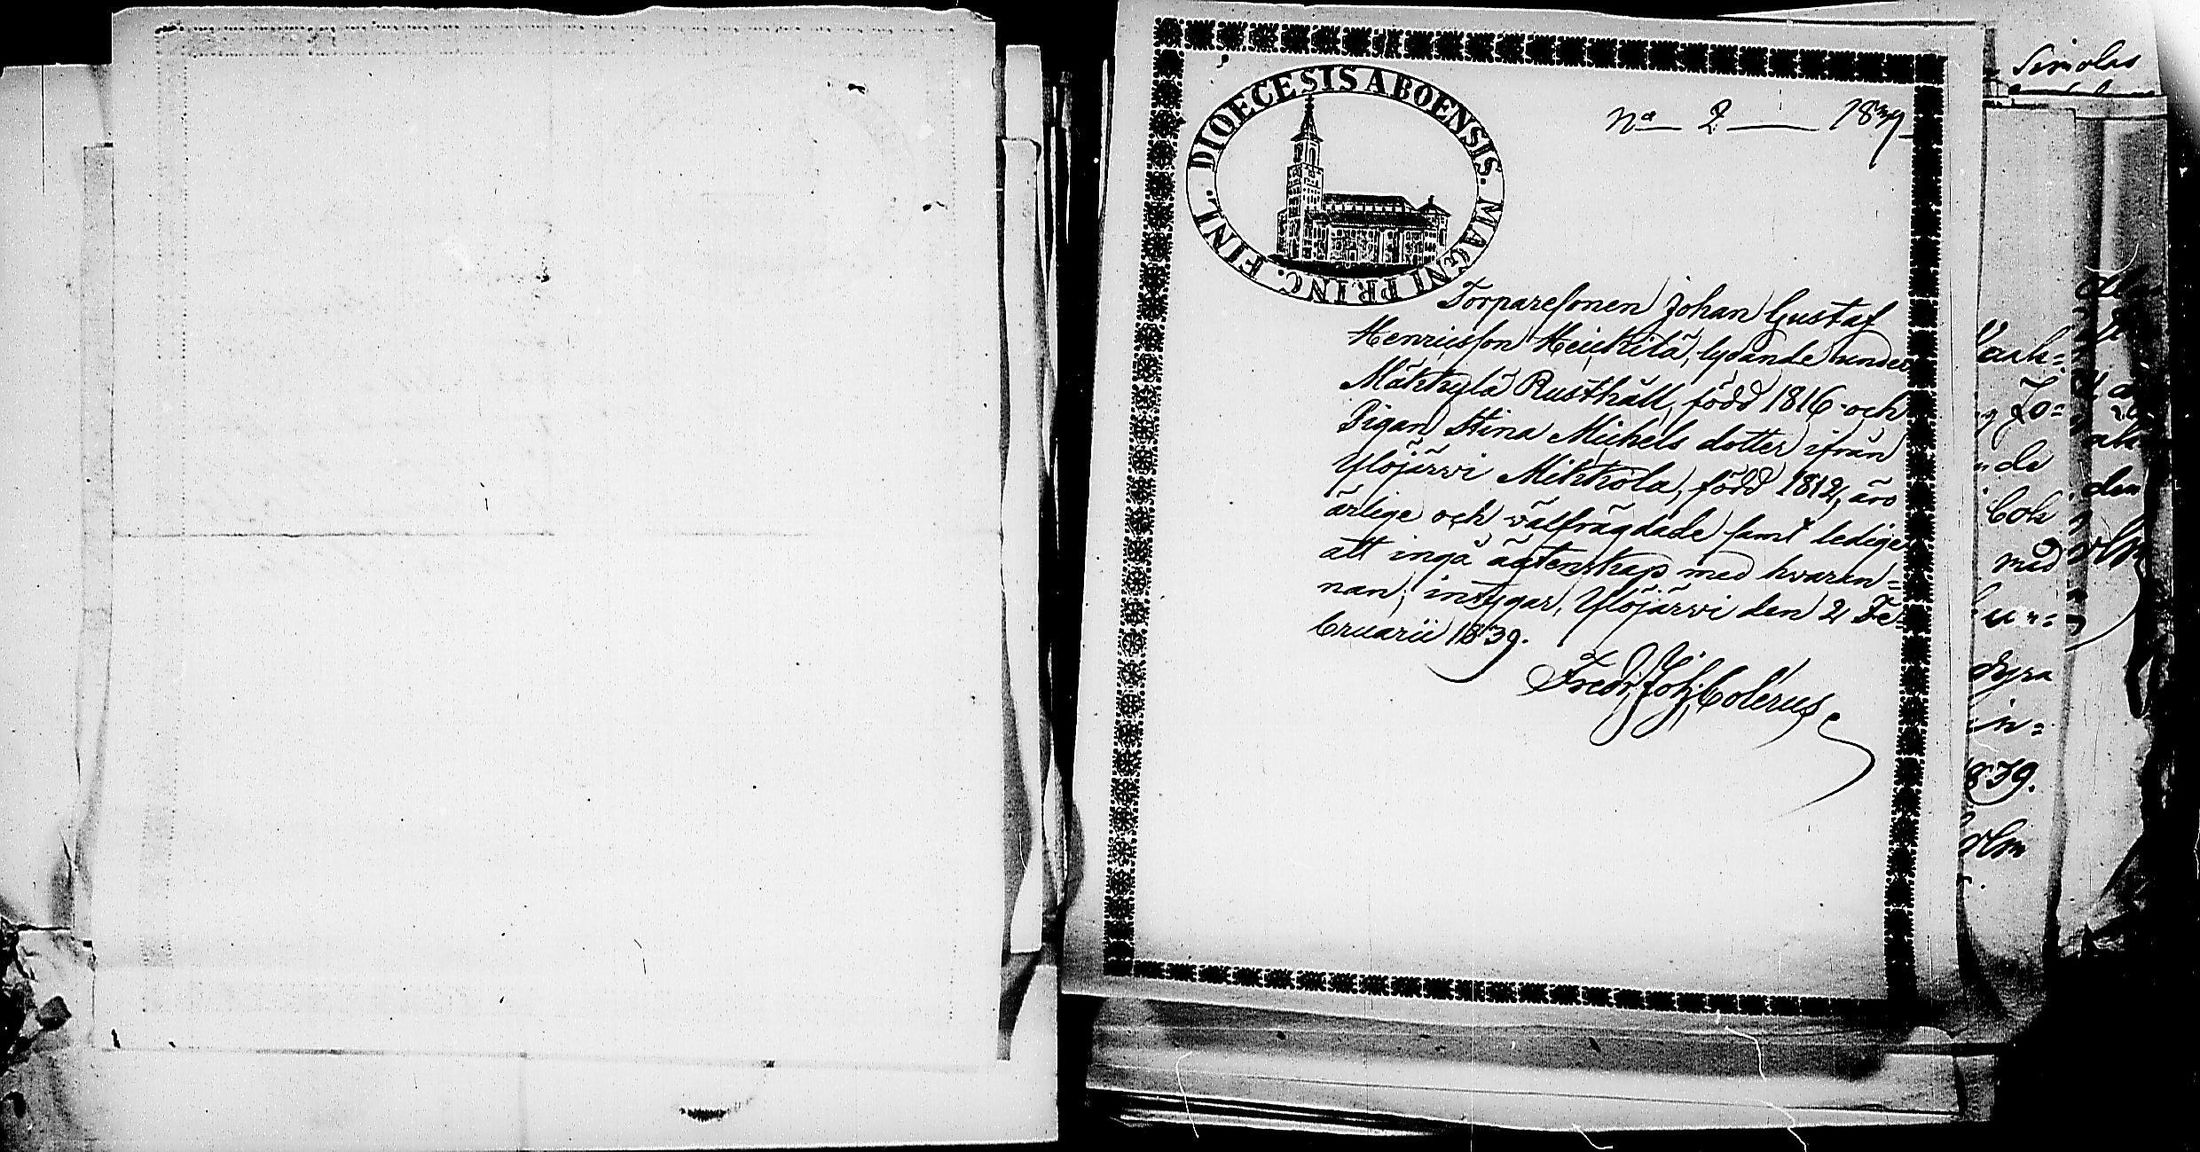 DIOECESIS ABOENSIS. MAGNI PRINC. FINL.
No 2 1839
Torparesonen Johan Gustaf
Henricsson Heickilä, lydande under
Mäkkylä Rusthåll, född 1816 och
Pigan Stina Michels dotter ifrån
Ylöjärvi Mikkola, född 1812, äro
ärlige och välfrägdade samt ledige
att ingå äктenskap med hvaran=
nan; intygar, Ylöjärvi den 2 Fe=
bruarii 1839.
Fredr. Joh. Colerus.
den
Jo=
de
med
un=
dyra
in=
1839.